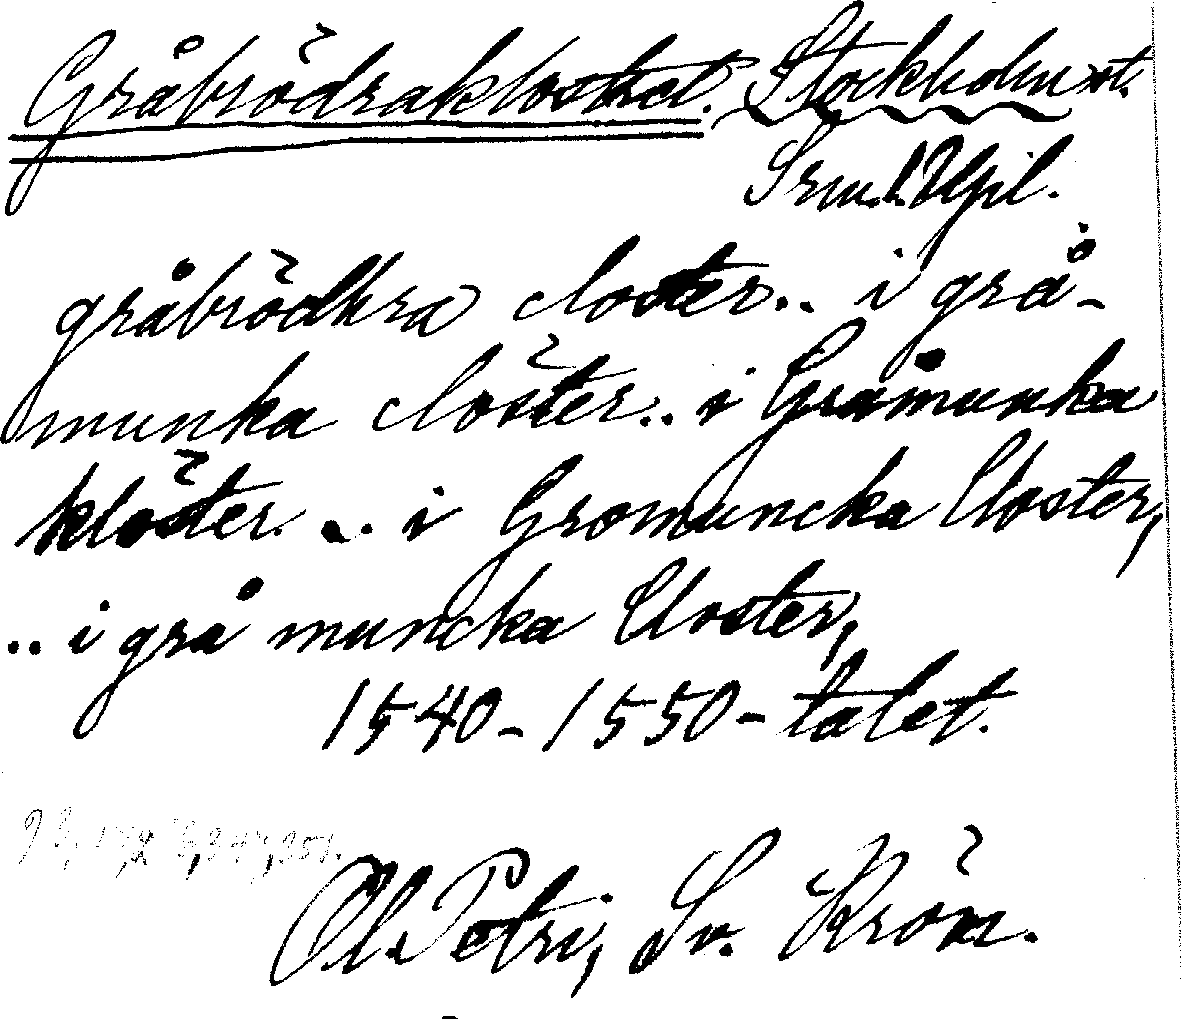 Gråbrödraklostret. Stockholm st.
Srm.l.Upl.
gråbrödhra closter.. i grå-
munka clöster.. i Gråmunka
klöster. .. i Gromuncka Closter,
.. i grå muncka Closter,
1540-1550-talet.
Ol. Petri, Sv. Krön.